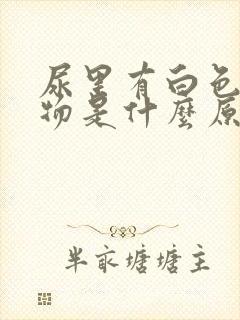 尿里有白色
物是什麼原
半亩塘塘主